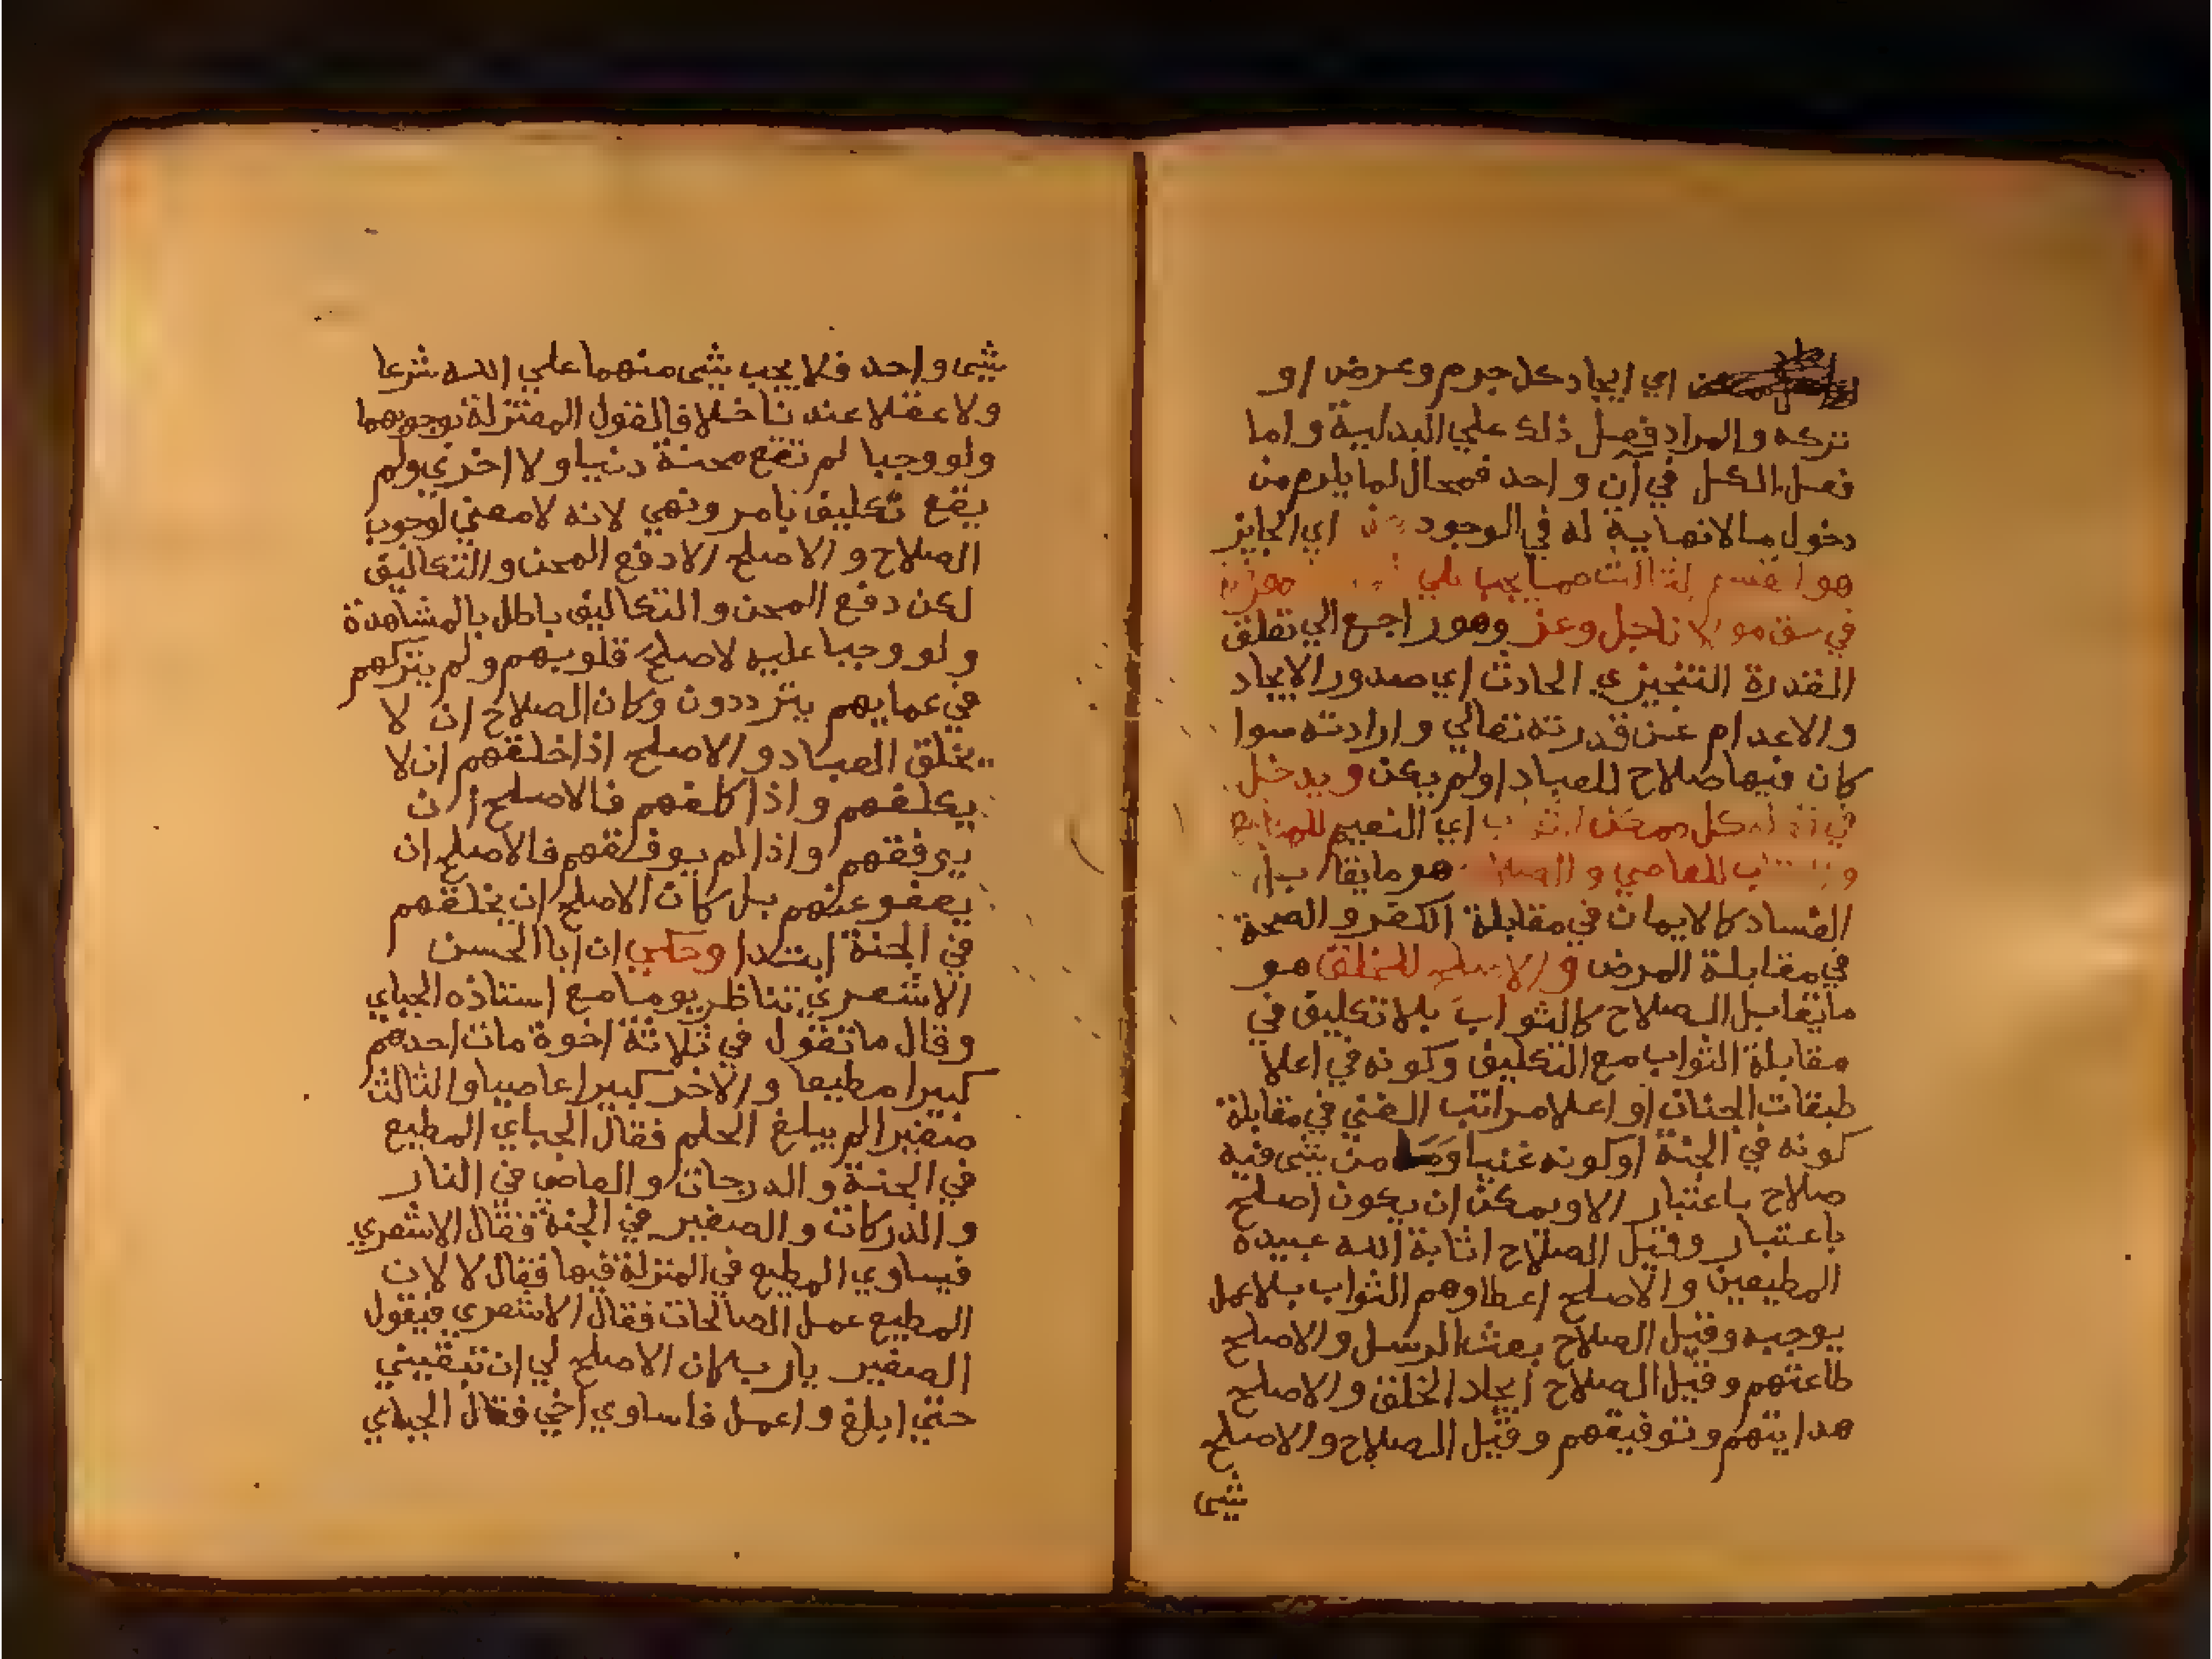 اي ايجاد كل جرم وعرض او
تركه والمراد فعل ذلك علي البدلية واما
فعل الكل في ان واحد فمحال لما يلزم من
دخول مالانهاية له في الوجود اي الجايز
هو القسم الثالث مما يجب علي معرفته
في حق مولانا جل وعز وهو راجع الي تعلق
القدرة التنجيزي الحادث اي صدور الايجاد
والاعدام عن قدرته تعالي وارادته سوا
كان فيها صلاح للعباد او لم يكن ويدخل
في كل ممكن اي النعيم للمطيع
و للعاصي و هو ما يقابل
الفساد كالايمان في مقابلة الكفر والصحة
في مقابلة المرض والاصلح للخلق هو
ما يقابل الصلاح كالثواب بلا تكليف في
مقابلة الثواب مع التكليف وكونه في اعلا
طبقات الجنان او اعلا مراتب الغني في مقابلة
كونه في الجنة او كونه غنيا وما من شي فيه
صلاح باعتبار الا ويمكن ان يكون اصلح
باعتبار وقيل الصلاح اثابة الله عبيده
المطيعين والاصلح اعطاوهم الثواب بلا عمل
يوجبه وقيل الصلاح بعث الرسل والاصلح
طاعتهم وقيل الصلاح ايجاد الخلق والاصلح
هدايتهم وتوفيقهم وقيل الصلاح والاصلح
شي
شي واحد فلا يجب شي منهما علي الله شرعا
ولا عقلا عندنا خلافا لقول المعتزلة بوجوبهما
ولو وجبا لم تقع محنة دنيا ولا اخري ولم
يقع تكليف بامر ونهي لانه لا معني لوجوب
الصلاح والاصلح الا دفع المحن والتكاليف
لكن دفع المحن والتكاليف باطل بالمشاهدة
ولو وجبا عليه لاصلح قلوبهم ولم يتركهم
في عمايهم يترددون وكان الصلاح ان لا
يخلق العباد والاصلح اذا خلقهم ان لا
يكلفهم واذا كلفهم فالاصلح ان
يوفقهم واذا لم يوفقهم فالاصلح ان
يعفو عنهم بل كان الاصلح ان يخلقهم
في الجنة ابتدا وحكي ان ابا الحسن
الاشعري تناظر يوما مع استاذه الجباي
وقال ما تقول في ثلاثة اخوة مات احدهم
كبيرا مطيعا والاخر كبيرا عاصيا والثالث
صغيرا لم يبلغ الحلم فقال الجباي المطيع
في الجنة والدرجات والعاصي في النار
والدركات والصغير في الجنة فقال الاشعري
فيساوي المطيع في المنزلة فيها فقال لا لان
المطيع عمل الصالحات فقال الاشعري فيقول
الصغير يارب كان الاصلح لي ان تبقيني
حتي ابلغ واعمل فاساوي اخي فقال الجباي